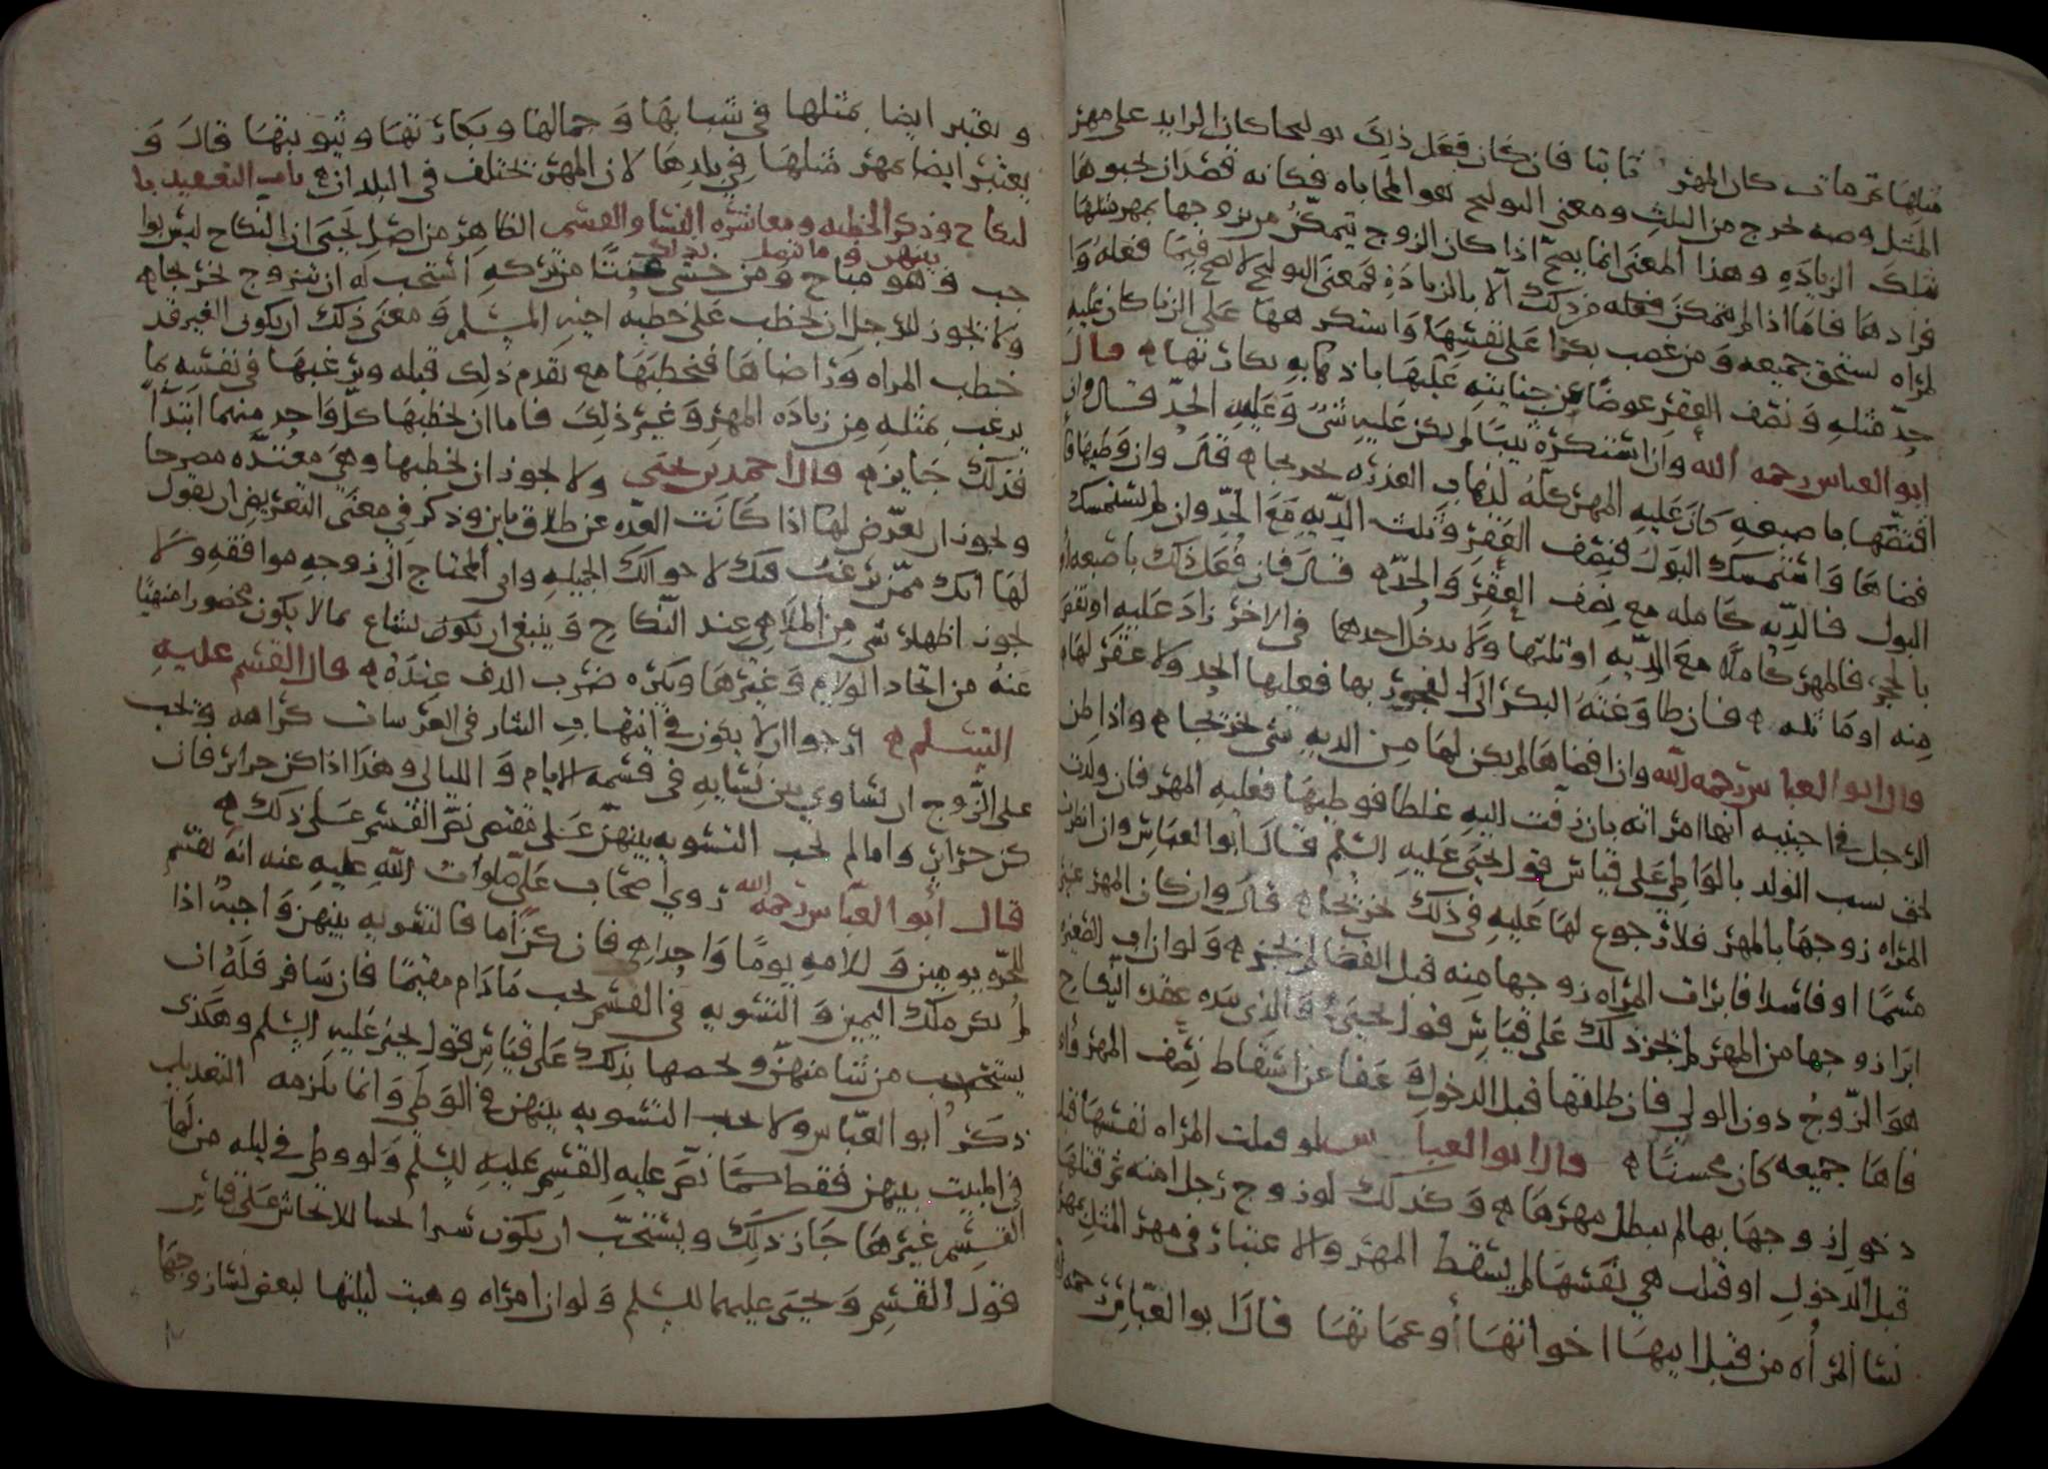 مثلها ثم مات كان المهر ثابتا فان كان فعل ذلك توليجا كان الزايد على مهر
المثل وصيه تخرج من الثلث ومعنى التوليج هو المحاباه فكانه قصد ان يحبوها
بتلك الزياده وهذا المعنى انما يصح اذا كان الزوج يتمكن من تزوجها بمهر مثلها
فزادها فاما اذا لم يتمكن فعله من ذلك الا بالزياده فمعنى التوليج لا يصح فيما فعله وا
لمراه تستحق جميعه ومن غصب بكرا على نفسها واستكرهها على الزنا كان عليه
حد مثله ونصف العقر عوضا عن جنايته عليها باذهابه بكارتها قال
ابو العباس رحمه الله وان استكره ثيبا لم يكن عليه شي وعليه الحد قال وان
افتضها باصبعه كان عليه المهر كله لذهاب العذره تخريجا قال وان وطيها فا
فضاها واستمسك البول فنصف العقر وثلث الديه مع الحد وان لم يستمسك
البول فالديه كامله مع نصف العقر والحد قال فان فعل ذلك باصبعه او
بالحجر فالمهر كاملا مع الديه او ثلثها ولا يدخل احدهما في الاخر زاد عليه او نقص
منه او ماثله فان طاوعته البكر الى الفجور بها فعليها الحد ولا عقر لها
قال ابو العباس رحمه الله وان افضاها لم يكن لها من الديه شي تخريجا واذا ظن
الرجل في اجنبيه انها امراته بان زفت اليه غلطا فوطيها فعليه المهر فان ولدت
لحق نسب الولد بالواطي على قياس قول يحيى عليه السلم قال ابو العباس وان ابرات
المراه زوجها بالمهر فلا رجوع لها عليه في ذلك تخريجا قال وان كان المهر غير
مسما او فاسدا فابرات المراه زوجها منه قبل القضا لم يجز ولو ان اب الصغيره
ابرا زوجها من المهر لم يجز ذلك على قياس قول يحيى والذي بيده عقده النكاح
هو الزوج دون الولي فان طلقها قبل الدخول وعفا عن اسقاط نصف المهر واو
فاها جميعه كان محسنا قال ابو العباس لو قتلت المراه نفسها قبل
دخول زوجها بها لم يبطل مهرها وكذلك لو زوج رجل امته ثم قتلها
قبل الدخول او قتلت هي نفسها لم يسقط المهر والاعتبار في مهر المثل بمهر
نسا المراه من قبل ابيها اخواتها او عماتها قال ابو العباس رحمه الله
ويعتبر ايضا بمثلها في شبابها وجمالها وبكارتها وثيوبتها قال و
يعتبر ايضا بمهر مثلها في بلدها لان المهر تختلف في البلدان باب
لنكاح وذكر الخطبه ومعاشره النسا والقسم بينهن وما يتصل بذلك الظاهر من اصل يحيى ان النكاح ليس بوا
جب وهو مباح ومن خشى عنتا من تركه استحب له ان يتزوج تخريجا
ولا يجوز للرجل ان يخطب على خطبه اخيه المسلم ومعنى ذلك ان يكون الغير قد
خطب المراه وراضاها فيخطبها مع تقدم ذلك قبله ويرغبها في نفسه بما
يرغب بمثله من زياده المهر وغير ذلك فاما ان يخطبها كل واحد منهما ابتدا
فذلك جايز قال احمد بن يحيى ولا يجوز ان يخطبها وهي معتده مصرحا
ويجوز ان يعرض لها اذا كانت العده عن طلاق باين وذكر في معنى التعريض ان يقول
لها انك ممن يرغب فيك لاحوالك الجميله واني المحتاج الى زوجه موافقه ولا
يجوز اظهار شي من الملاهي عند النكاح وينبغي ان يكون يشاع بما لا يكون محضورا منهيا
عنه من اتخاذ الولايم وغيرها ويكره ضرب الدف عنده قال القسم عليه
السلم ارجوا ان لا يكون في انتهاب النثار في العرسات كراهه ويجب
على الزوج ان يساوي بين نسايه في قسمه الايام والليالي وهذا اذا كن حراير فان
كن حراير واما لم يجب التسويه بينهن على مقتضى نص القسم على ذلك
قال ابو العباس رحمه الله روي اصحاب علي صلوات الله عليه عنه انه يقسم
للحره يومين وللامه يوما واحدا فان كن اما فالتسويه بينهن واجبه اذا
لم يكن ملك اليمين والتسويه في القسم يجب مادام مقيما فان سافر فله ان
يستصحب من شا منهن ويخصها بذلك على قياس قول يحيى عليه السلم وهكذى
ذكر ابو العباس ولا يجب التسويه بينهن في الوطي وانما يلزمه التعديل
في المبيت بينهن فقط كما نص عليه القسم عليه السلم ولو وطي في ليله من لها
القسم غيرها جاز ذلك ويستحب ان يكون سرا على قياس
قول القسم ويحيى عليهما السلم ولو ان امراه وهبت ليلتها لبعض نسا زوجها